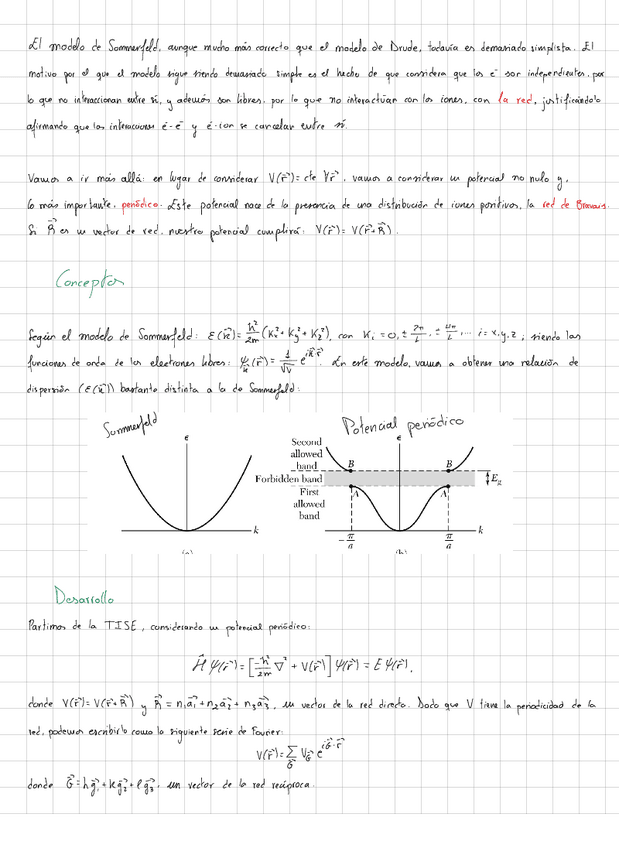 El modelo de Sommerfeld, aunque mucho más correcto que el modelo de Drude, todavía es demasiado simplista. El
motivo por el que el modelo sigue siendo demasiado simple es el hecho de que considera que los e⁻ son independientes, por
lo que no interaccionan entre sí, y además son libres, por lo que no interactúan con los iones, con la red, justificándolo
afirmando que las interacciones e⁻-e⁻ y e⁻-ion se cancelan entre sí.
Vamos a ir más allá: en lugar de considerar V(r⃗)=cte ∀r⃗, vamos a considerar un potencial no nulo y,
lo más importante, periódico. Este potencial nace de la presencia de una distribución de iones positivos, la red de Bravais.
Si R⃗ es un vector de red, nuestro potencial cumplirá: V(r⃗)=V(r⃗+R⃗).
Conceptos
Según el modelo de Sommerfeld: ε(k⃗)=ħ²/2m (Kx²+Ky²+Kz²), con Ki=0,±2π/L,±4π/L,... i=x,y,z; siendo las
funciones de onda de los electrones libres: ψk⃗(r⃗)=1/√V e^{ik⃗·r⃗}. En este modelo, vamos a obtener una relación de
dispersión (ε(k⃗)) bastante distinta a la de Sommerfeld:
Sommerfeld
Potencial periódico
ϵ
k
Second
allowed
band
Forbidden band
First
allowed
band
ϵ
B
B
A
A
Eg
k
-π/a
π/a
Desarrollo
Partimos de la TISE, considerando un potencial periódico:
Ĥψ(r⃗)=[-ħ²/2m ∇²+V(r⃗)]ψ(r⃗)=Eψ(r⃗),
donde V(r⃗)=V(r⃗+R⃗) y R⃗=n₁a⃗₁+n₂a⃗₂+n₃a⃗₃, un vector de la red directa. Dado que V tiene la periodicidad de la
red, podemos escribirlo como la siguiente serie de Fourier:
V(r⃗)=∑G⃗ VG⃗ e^{iG⃗·r⃗}
donde G⃗=hg⃗₁+kg⃗₂+lg⃗₃, un vector de la red recíproca.